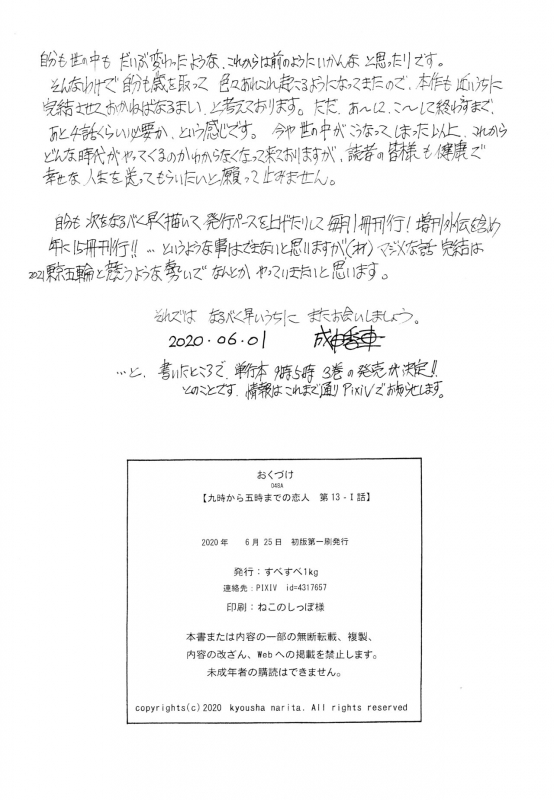 自分も世の中も だいぶ変わったような、これからは前のようにいかんな と思ったりです。
そんなわけで自分も歳を取って 色々あれこれ起こるようになってきたので、本作も近いうちに
完結させておかねばなるまい、と考えております。ただ、あ〜して、こ〜して終わすまで、
あと4話くらい必要か、という感じです。今や世の中がこうなってしまった以上、これから
どんな時代がやってくるのかわからなくなって来ておりますが、読者の皆様も健康で
幸せな人生を送ってもらいたいと願って止みません。
自分も次をなるべく早く描いて、発行ペースを上げたりして毎月1冊刊行!増刊外伝を含め
年に15冊刊行!!…というような事はできないと思いますが(オイ)マジメな話 完結は
2021東京五輪と競うような勢いでなんとか、やっていきたいと思います。
それでは なるべく早いうちに またお会いしましょう。
2020.06.01 成田香車
…と、書いたところで、単行本 9時5時 3巻の発売が決定!!
とのことです、情報はこれまで通りPixivでお知らせします。
おくづけ
048A
【九時から五時までの恋人 第13-Ⅰ話】
2020年 6月25日 初版第一刷発行
発行:すべすべ1kg
連絡先:PIXIV id=4317657
印刷:ねこのしっぽ様
本書または内容の一部の無断転載、複製、
内容の改ざん、Webへの掲載を禁止します。
未成年者の購読はできません。
copyrights(c)2020 kyousha narita. All rights reserved